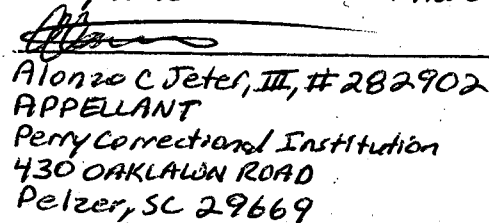 Alonzo C Jeter, III, # 282902
APPELLANT
Perry Correctional Institution
430 OAKLAWN ROAD
Pelzer, SC 29669